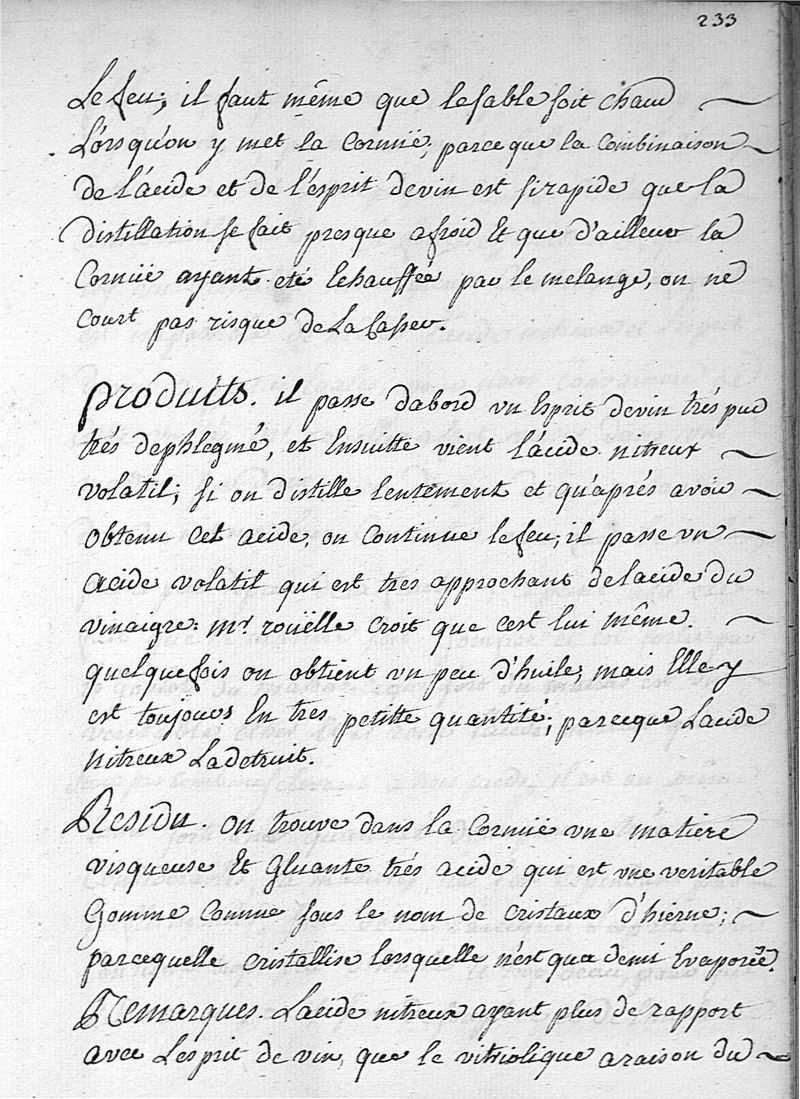 233
Le feu; il faut même que le sable soit chaud
Lorsqu'on y met la Cornüe, parce que la Combinaison
de l'acide et de l'esprit de vin est si rapide que la
distillation se fait presque a froid Et que d'ailleur la
Cornüe ayant eté Echauffée par le melange, on ne
Court pas risque de La Casser.
produits. il passe d'abord vn Esprit de vin trés pur
trés dephlegmé, et Ensuitte vient l'acide nitreux
volatil; si on distille lentement et qu'aprés avoir
obtenu cet acide, on Continue le feu; il passe vn
acide volatil qui est tres approchant de l'acide du
vinaigre: mr. roüelle croit que c'est lui même.
quelquefois on obtient vn peu d'huile, mais Elle y
est toujours En tres petitte quantité; parceque L'acide
nitreux La detruit.
Residu. on trouve dans la Cornüe vne matiere
visqueuse Et Gluante trés acide qui est vne veritable
Gomme Connue sous le nom de cristaux d'hierne;
parcequelle cristallise lorsquelle n'est qu'a demi Evaporée.
Remarques. L'acide nitreux ayant plus de rapport
avec L'esprit de vin, que le vitriolique a raison du